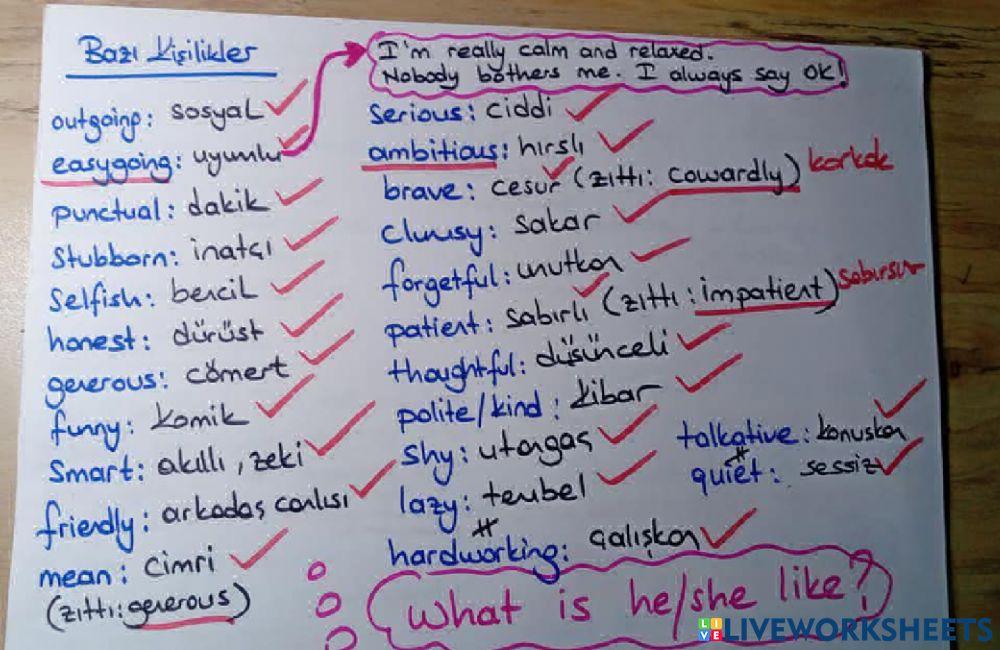 Bazı Kişilikler
I'm really calm and relaxed.
Nobody bothers me. I always say OK!
outgoing: sosyal
easygoing: uyumlu
punctual: dakik
Stubborn: inatçı
Selfish: bencil
honest: dürüst
generous: cömert
funny: komik
Smart: akıllı, zeki
friendly: arkadaş canlısı
mean: cimri
(zıttı: generous)
Serious: ciddi
ambitious: hırslı
brave: cesur (zıttı: cowardly) korkak
clumsy: sakar
forgetful: unutkan
patient: sabırlı (zıttı: impatient) sabırsız
thoughtful: düşünceli
polite/kind: kibar
Shy: utangaç
lazy: tembel
#
hardworking: çalışkan
talkative: konuşkan
#
quiet: sessiz
What is he/she like?
LIVEWORKSHEETS